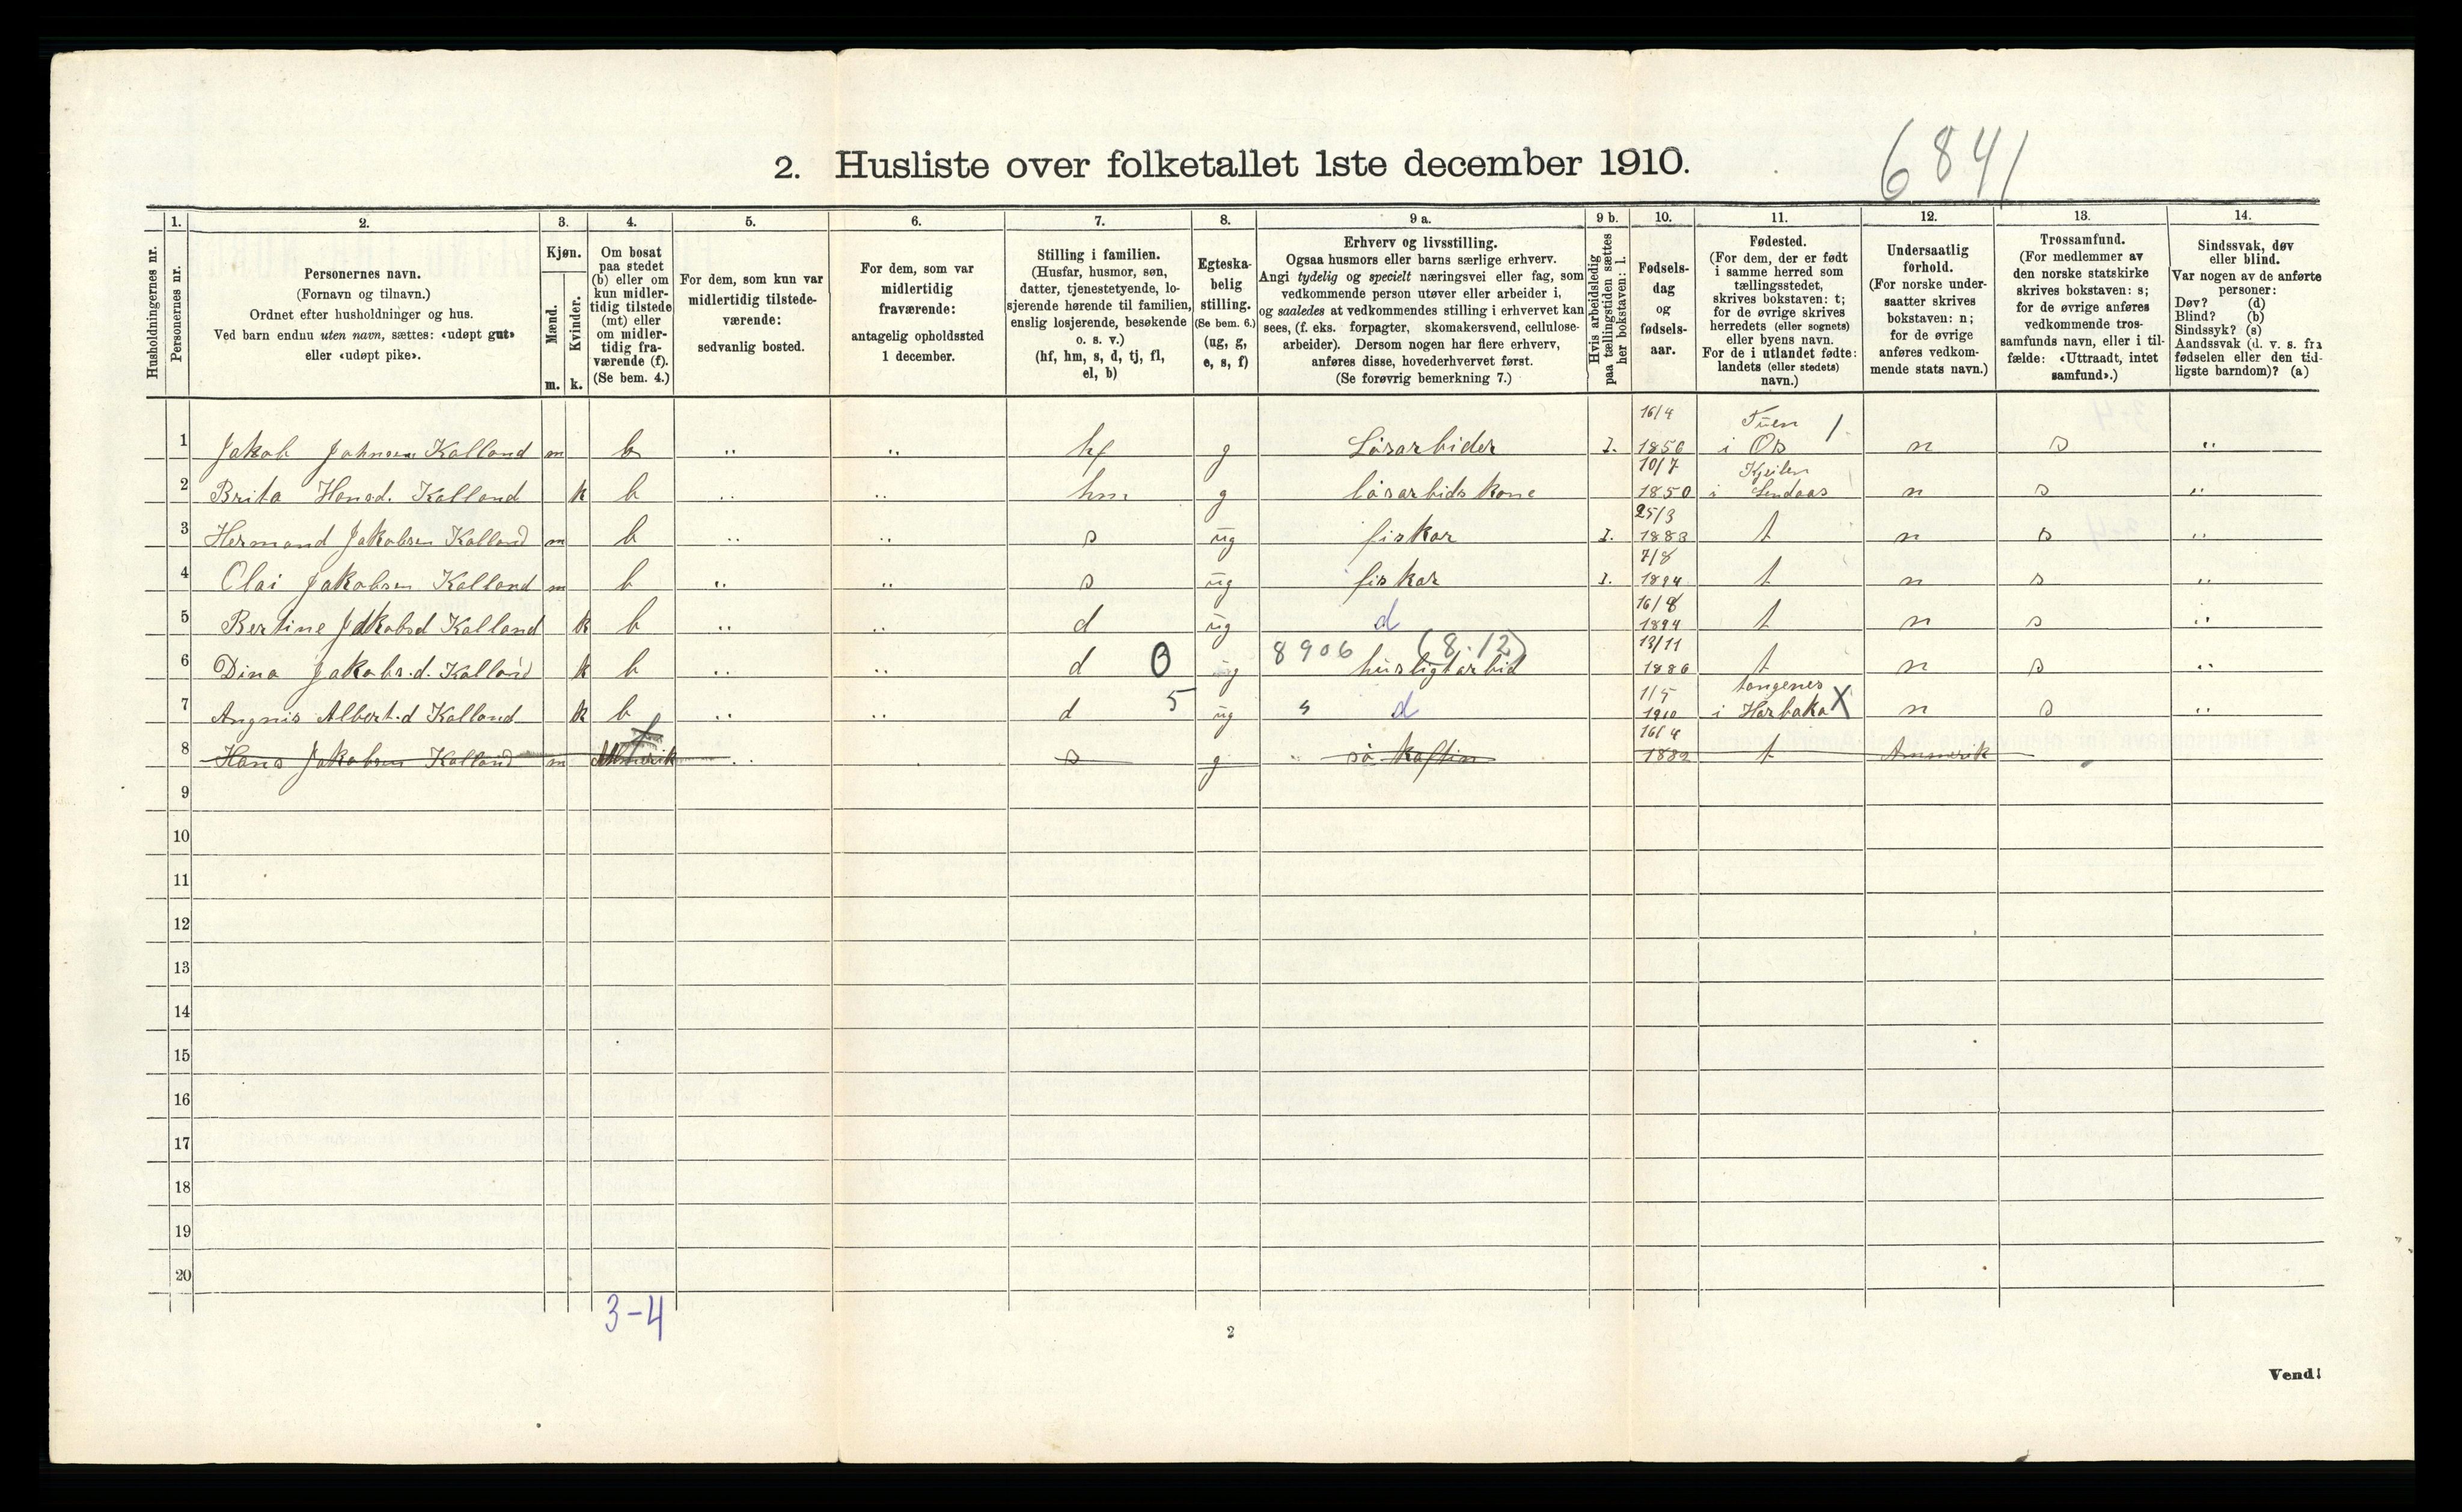 2. Husliste over folketallet 1ste december 1910.
6841
Husholdningernes nr.
1. Personernes nr.
2. Personernes navn.
(Fornavn og tilnavn.)
Ordnet efter husholdninger og hus.
Ved barn endnu uten navn, sættes: «udøpt gut»
eller «udøpt pike».
3. Kjøn.
Mænd. m.
Kvinder. k.
4. Om bosat
paa stedet
(b) eller om
kun midler-
tidig tilstede
(mt) eller
om midler-
tidig fra-
værende (f).
(Se bem. 4.)
5. For dem, som kun var
midlertidig tilstede-
værende:
sedvanlig bosted.
6. For dem, som var
midlertidig
fraværende:
antagelig opholdssted
1 december.
7. Stilling i familien.
(Husfar, husmor, søn,
datter, tjenestetyende, lo-
sjerende hørende til familien,
enslig losjerende, besøkende
o. s. v.)
(hf, hm, s, d, tj, fl,
el, b)
8. Egteska-
belig
stilling.
(Se bem. 6.)
(ug, g,
e, s, f)
9 a. Erhverv og livsstilling.
Ogsaa husmors eller barns særlige erhverv.
Angi tydelig og specielt næringsvei eller fag, som
vedkommende person utøver eller arbeider i,
og saaledes at vedkommendes stilling i erhvervet kan
sees, (f. eks. forpagter, skomakersvend, cellulose-
arbeider). Dersom nogen har flere erhverv,
anføres disse, hovederhvervet først.
(Se forøvrig bemerkning 7.)
9 b. Hvis arbeidsledig
paa tællingstiden sættes
her bokstaven: l.
10. Fødsels-
dag
og
fødsels-
aar.
11. Fødested.
(For dem, der er født
i samme herred som
tællingsstedet,
skrives bokstaven: t;
for de øvrige skrives
herredets (eller sognets)
eller byens navn.
For de i utlandet fødte:
landets (eller stedets)
navn.)
12. Undersaatlig
forhold.
(For norske under-
saatter skrives
bokstaven: n;
for de øvrige
anføres vedkom-
mende stats navn.)
13. Trossamfund.
(For medlemmer av
den norske statskirke
skrives bokstaven: s;
for de øvrige anføres
vedkommende tros-
samfunds navn, eller i til-
fælde: «Uttraadt, intet
samfund».)
14. Sindssvak, døv
eller blind.
Var nogen av de anførte
personer:
Døv? (d)
Blind? (b)
Sindssyk? (s)
Aandssvak (d. v. s. fra
fødselen eller den tid-
ligste barndom)? (a)
1 Jakob Johnsen Kalland m b " " hf g Løsarbider I. 16/4 1850 i Os n s "
2 Brita Hansd. Kalland k b " " hm g løsarbids kone 10/7 1850 i Lindaas n s "
3 Hermand Jakobsen Kalland m b " " s ug fiskar I. 25/3 1883 t n s "
4 Olai Jakobsen Kalland m b " " s ug fiskar I. 7/8 1894 t n s "
5 Bertine Jakobsd Kalland k b " " d ug d 16/8 1894 t n s "
8906 (8.12)
6 Dina Jakobs.d. Kalland k b " " d 0 ug husligtarbid 13/11 1886 t n s "
7 Angnis Albert.d Kalland k b " " d 5 ug " d 1/5 1910 tangenes i Herbaka X n s "
8 Hans Jakobsen Kalland m s g sø kaftin 16/4 1882 t Ammerik
9
10
11
12
13
14
15
16
17
18
19
20
3-4
2
Vend!